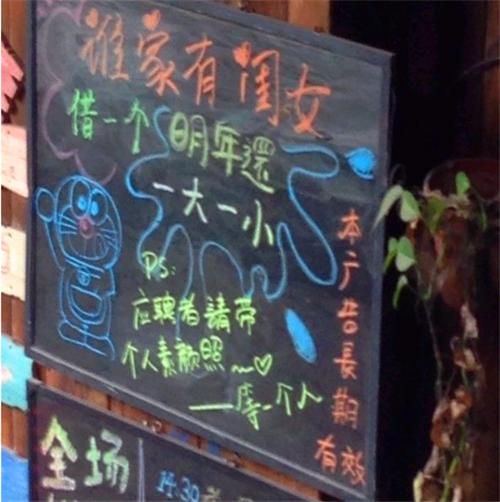 谁家有闺女
借一个明年還
一大一小
PS:
应聘者請带
个人素颜照~♡
——唐一个人
本广告長期有效
全场
14:30